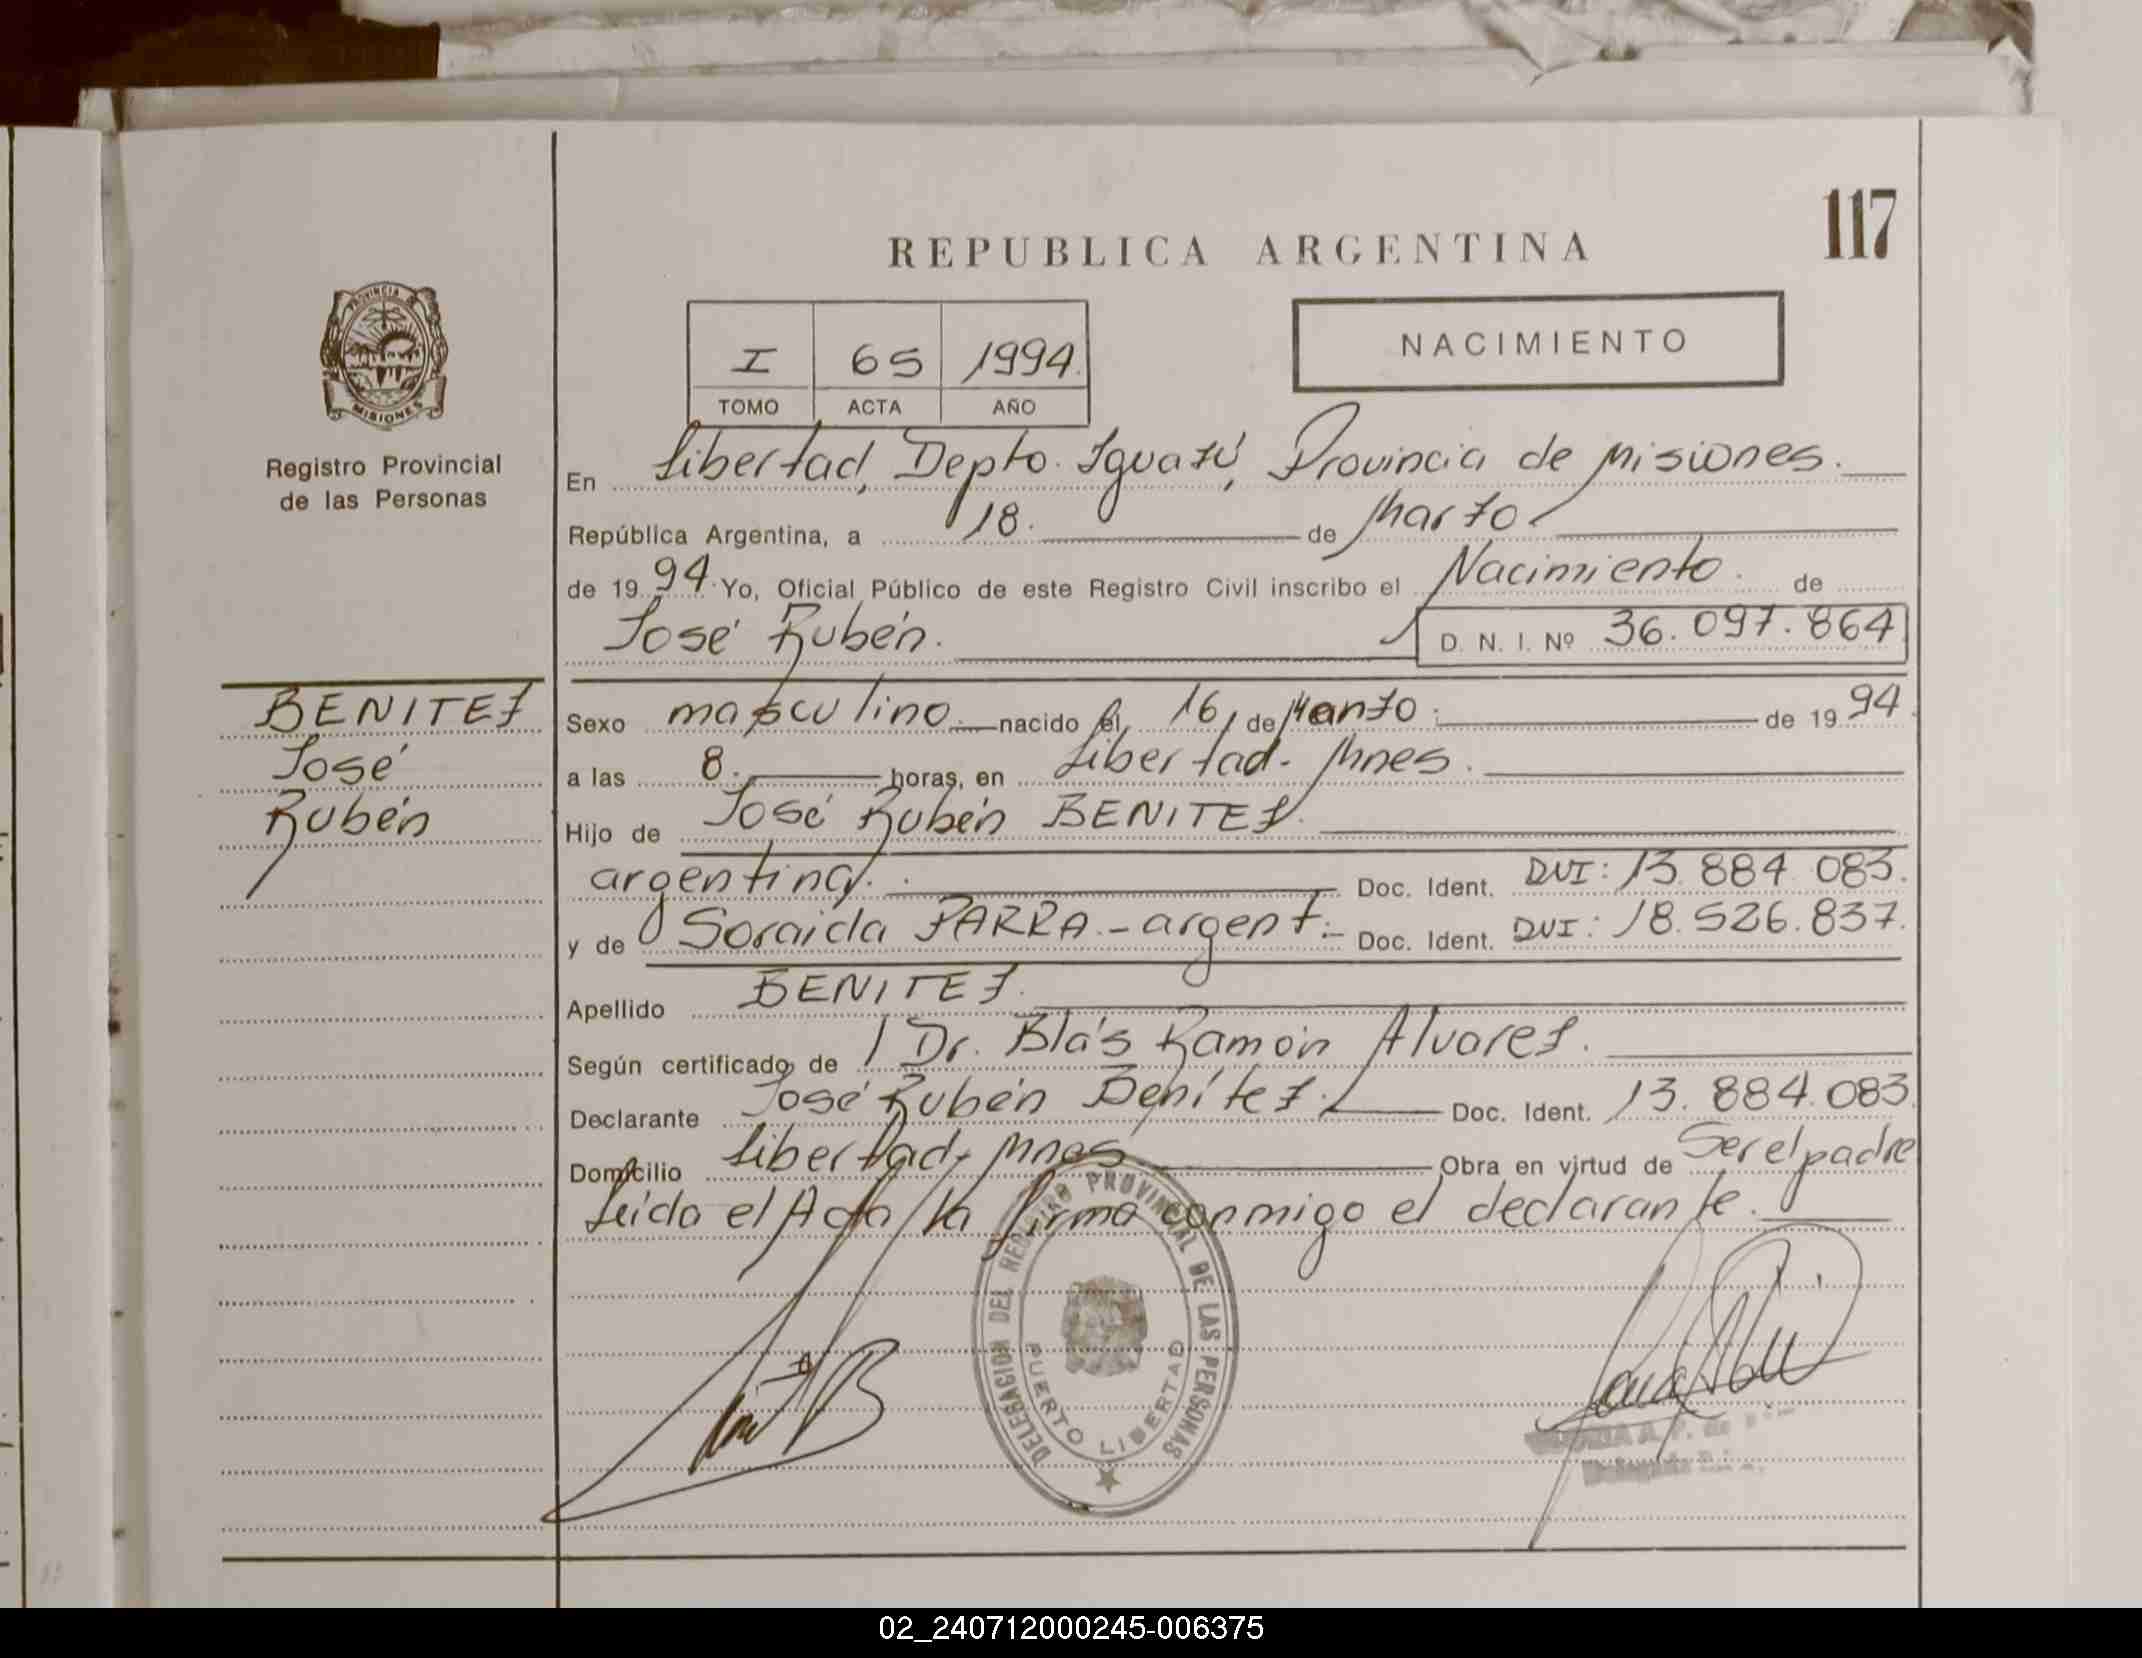 117
REPUBLICA ARGENTINA
PROVINCIA DE
MISIONES
Registro Provincial
de las Personas
I 65 1994.
TOMO ACTA AÑO
NACIMIENTO
En Libertad, Depto. Iguazú, Provincia de Misiones.
República Argentina, a 18. de Marzo
de 1994. Yo, Oficial Público de este Registro Civil inscribo el Nacimiento. de
José Rubén. D. N. I. Nº 36.097.864
BENITEZ
José
Rubén
Sexo masculino. nacido el 16, de Marzo. de 1994.
a las 8. horas, en Libertad- Mnes.
Hijo de José Rubén BENITEZ.
argentina. Doc. Ident. DNI: 13.884.083.
y de Soraida PARRA.- argent.- Doc. Ident. DNI: 18.526.837.
Apellido BENITEZ.
Según certificado de Dr. Blás Ramón Alvarez.
Declarante José Rubén Benítez. Doc. Ident. 13.884.083.
Domicilio Libertad- Mnes Obra en virtud de Ser el padre
Leida el Acta la firma conmigo el declarante.
DELEGACION DEL REGISTRO PROVINCIAL DE LAS PERSONAS
PUERTO LIBERTAD
02_240712000245-006375